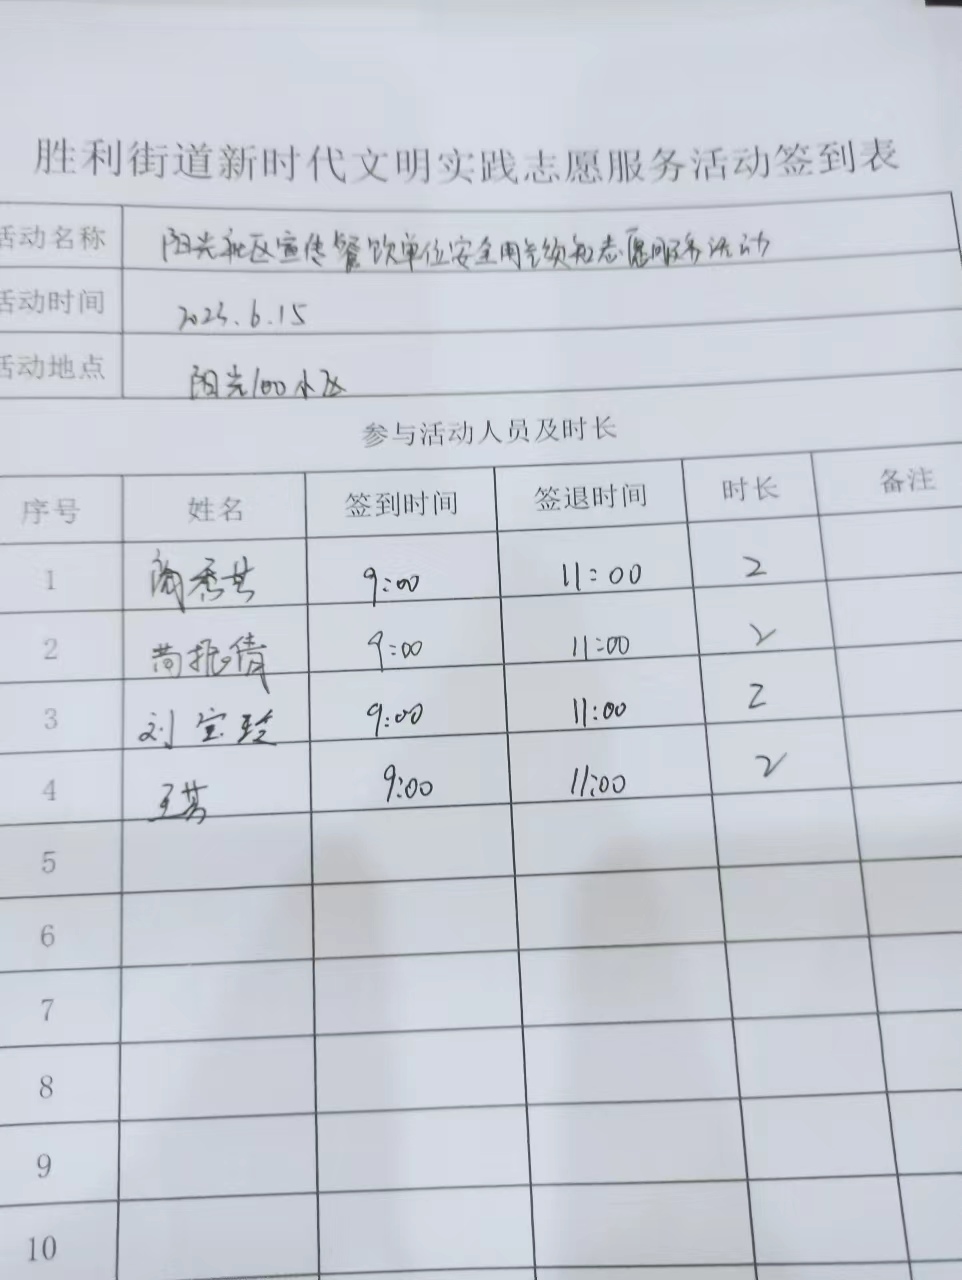 胜利街道新时代文明实践志愿服务活动签到表
活动名称 阳光社区宣传餐饮单位安全用气须知志愿服务活动
活动时间 2023.6.15
活动地点 阳光100小区
参与活动人员及时长
序号 姓名 签到时间 签退时间 时长 备注
1 9:00 11:00 2
2 9:00 11:00 2
3 刘宝玲 9:00 11:00 2
4 王其 9:00 11:00 2
5
6
7
8
9
10